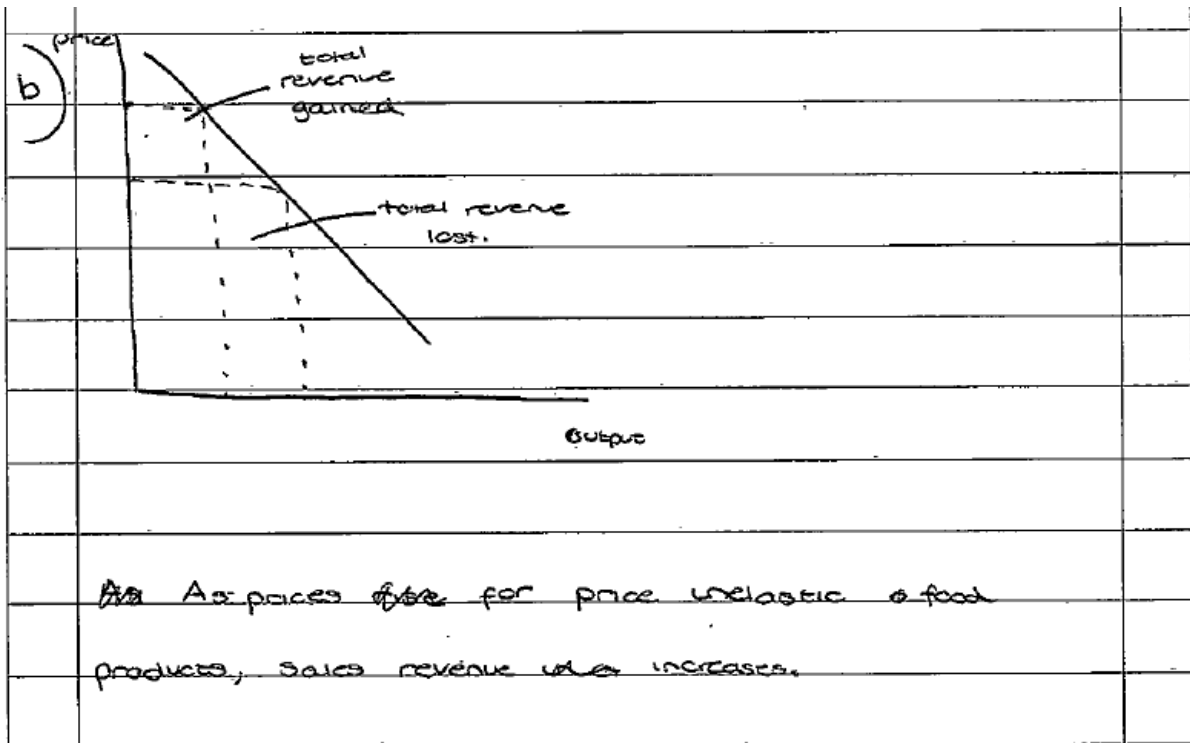 b)
price
total
revenue
gained
total revenue
lost.
Output
As prices for price inelastic food
products, sales revenue increases.